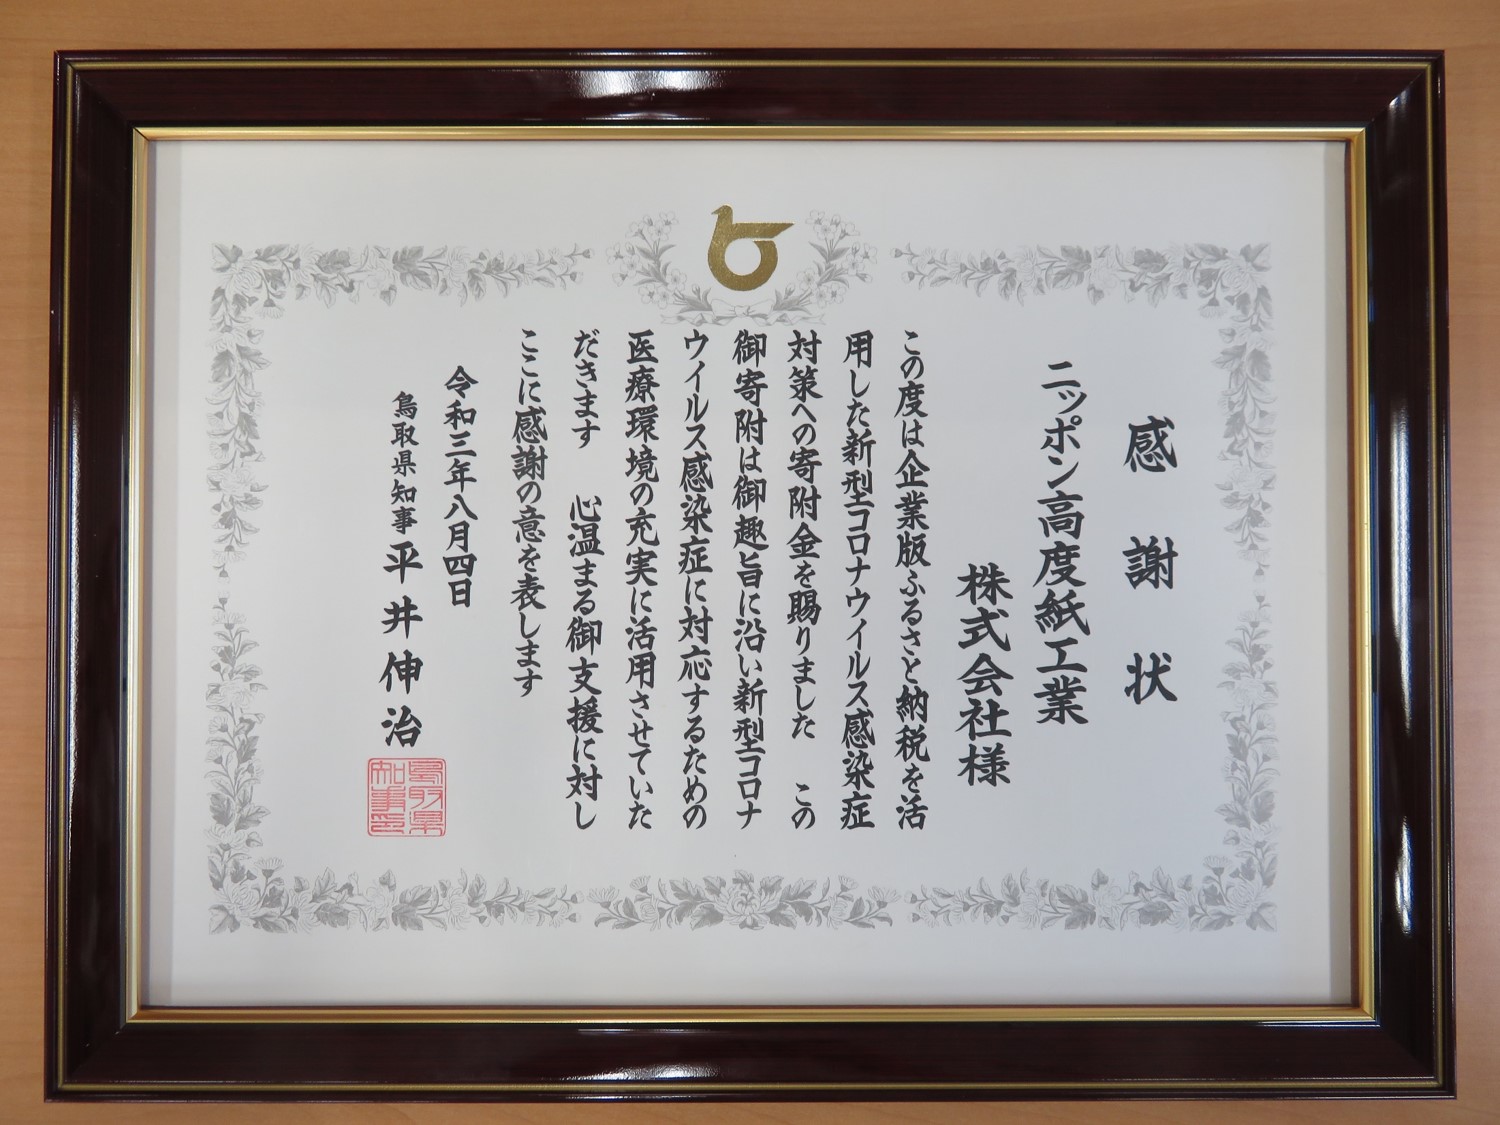 感謝状
ニッポン高度紙工業
株式会社様
この度は企業版ふるさと納税を活
用した新型コロナウイルス感染症
対策への寄附金を賜りました　この
御寄附は御趣旨に沿い新型コロナ
ウイルス感染症に対応するための
医療環境の充実に活用させていた
だきます　心温まる御支援に対し
ここに感謝の意を表します
令和三年八月四日
鳥取県知事 平井伸治
鳥取県
知事印